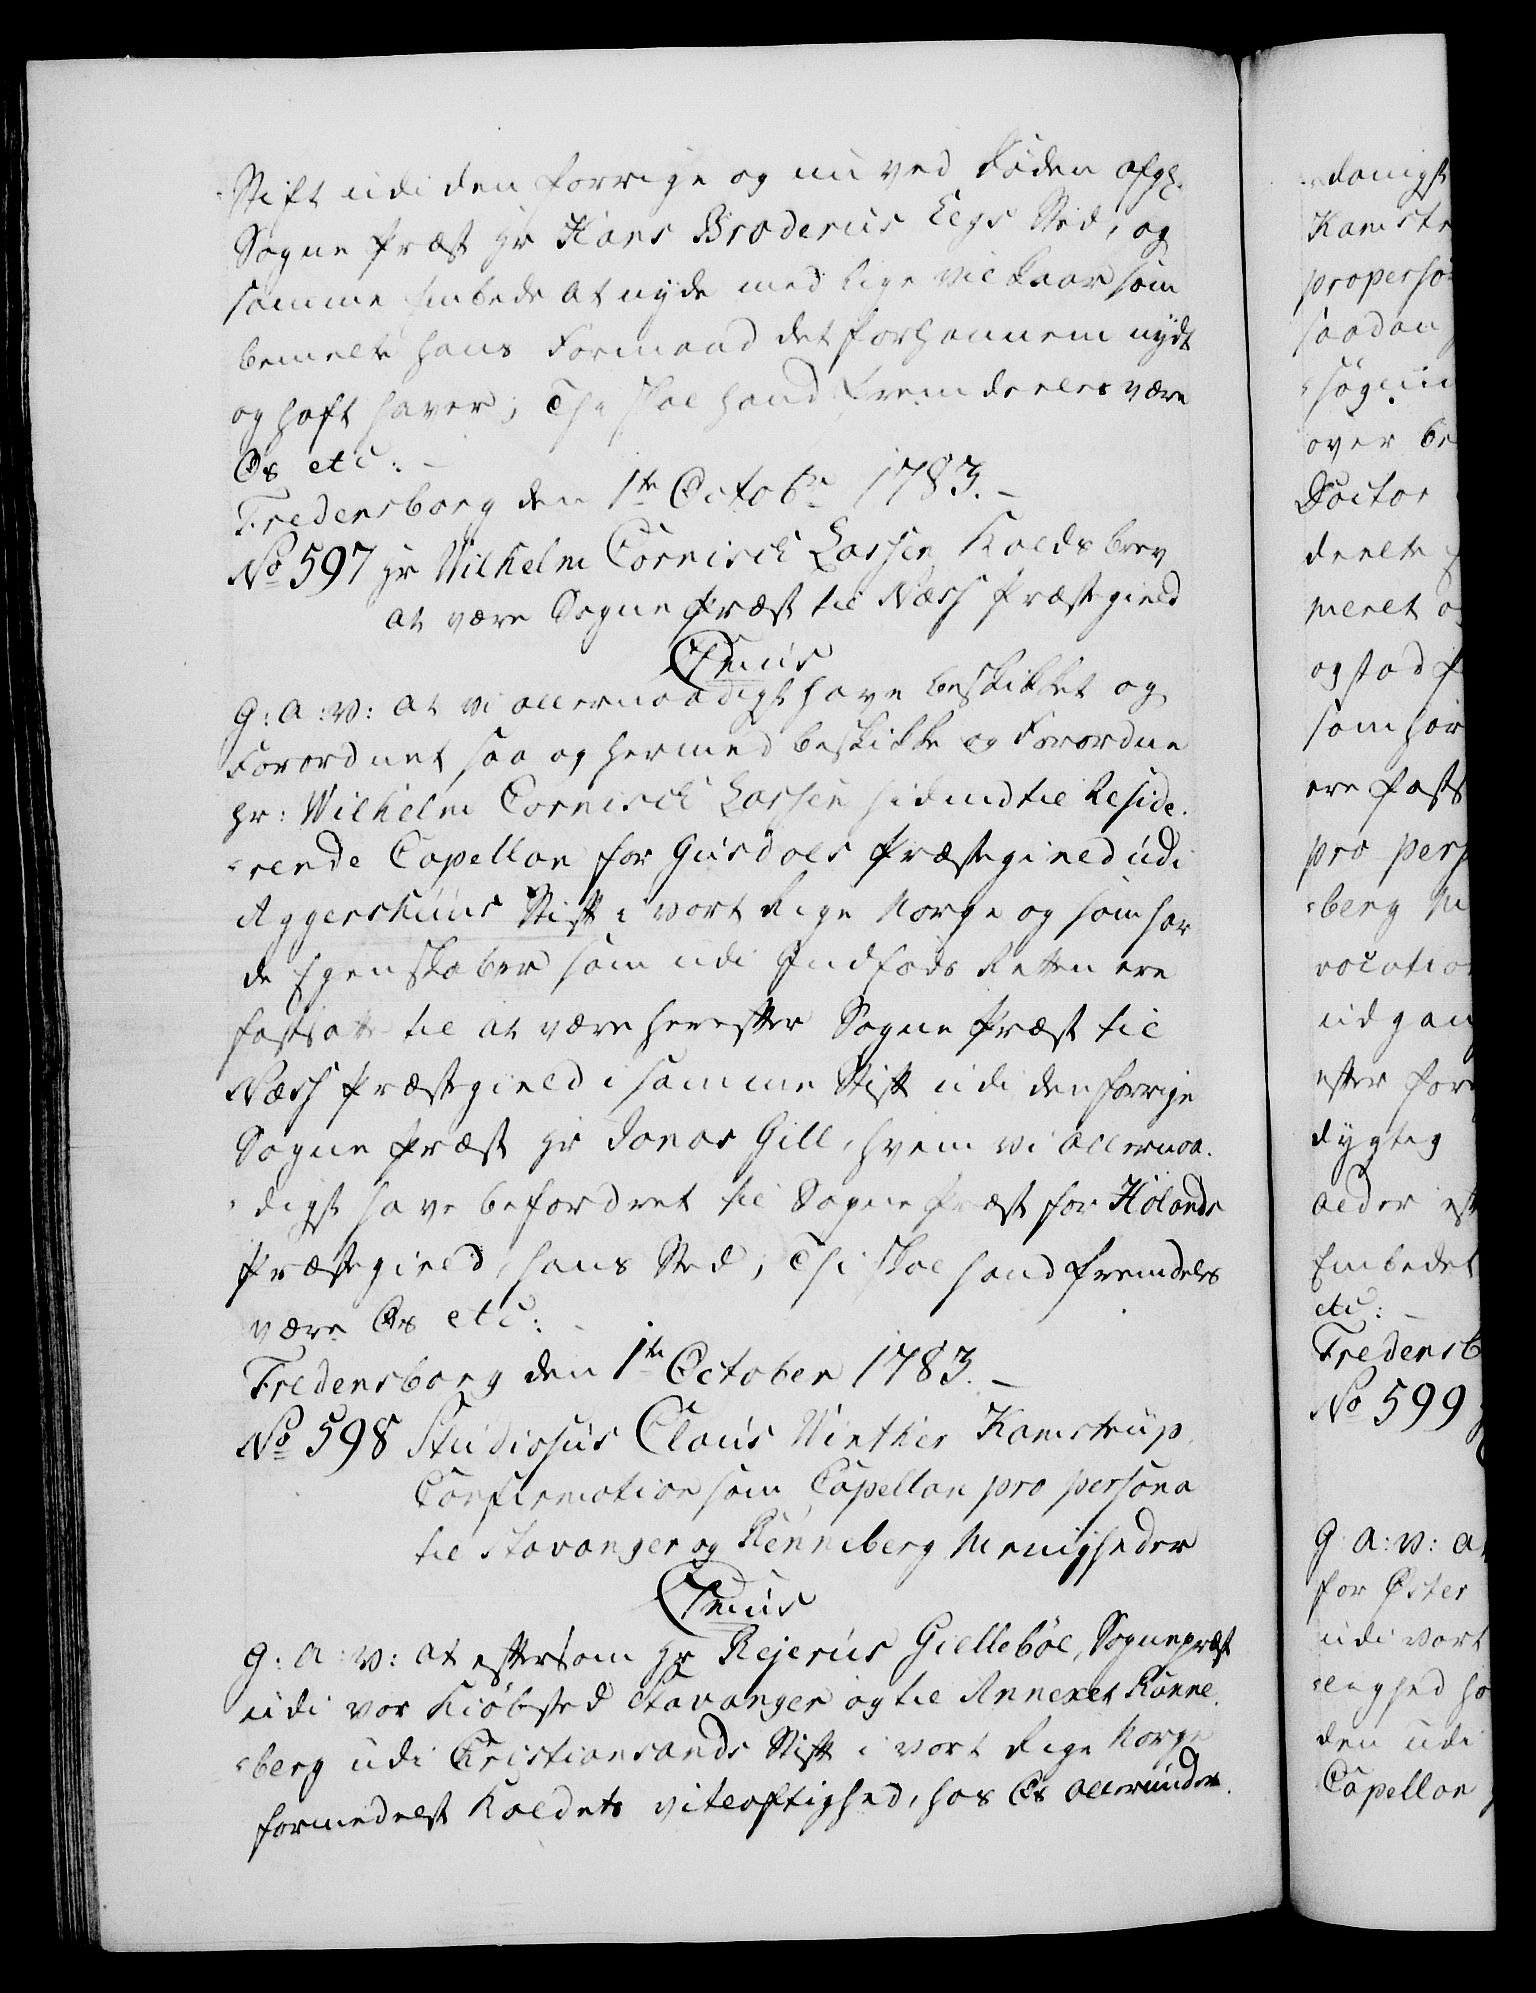 Stift udi den forrige og nu ved Døden afg:
Sogne Præst Hr Hans Broderus Legs Sted, og
samme Embede at nyde med lige Vilkaar som
bemelte hans Formand det forhannem nydt
og haft haver; Thi skal hand fremdeeles være
Os etc: –
Fredensborg den 1te Octobr 1783. –
No 597 Hr Wilhelm Cornisch Lassen Kaldsbrev
at være Sogne Præst til Næss Præstegield
Cmus
G: A: V: At vi allernaadigst have beskikket og
Forordnet saa og hermed beskikke og Forordne
Hr: Wilhelm Cornisch Lassen hidindtil Reside-
-rende Capellan for Gusdals Præstegield udi
Aggershuus Stift i vort Rige Norge og som har
de Egenskaber som udi Indføds Retten ere
fastsatte til at være herefter Sogne Præst til
Næss Præstegield i samme Stift udi den forrige
Sogne Præst Hr Jonas Gill, hvem vi allernaa-
-digst have befordret til Sogne Præst for Hølands
Præstegield, hans Sted; Thi skal hand fremdeles
være Os etc: –
Fredensborg den 1te October 1783. –
No 598 Studiosus Claus Winther Kamstrup
Confirmation som Capellan pro persona
til Stavanger og Renneberg Menigheder
Cmus
G: A: V: At eftersom Hr Rejerus Giellebøe, Sognepræst
udi vor Kiøbsted Stavanger og til Annexet Runne-
-berg udi Christiansands Stift i vort Rige Norge
formedelst Kaldets vitløftighed, hos Os allerunder-
-danigst
Kamstr
properso
saadan
søgni
over be
Doctor
deelte
meelt o
og stadf
som hør
ere fasts
pro pers
-berg M
vocatio
udgan
efter for
dygtig
alder eft
Embedet
etc: –
Fredensb
No 599
G: A: V: At
for Øster
udi vort
-lighed ha
den udi
Capellan